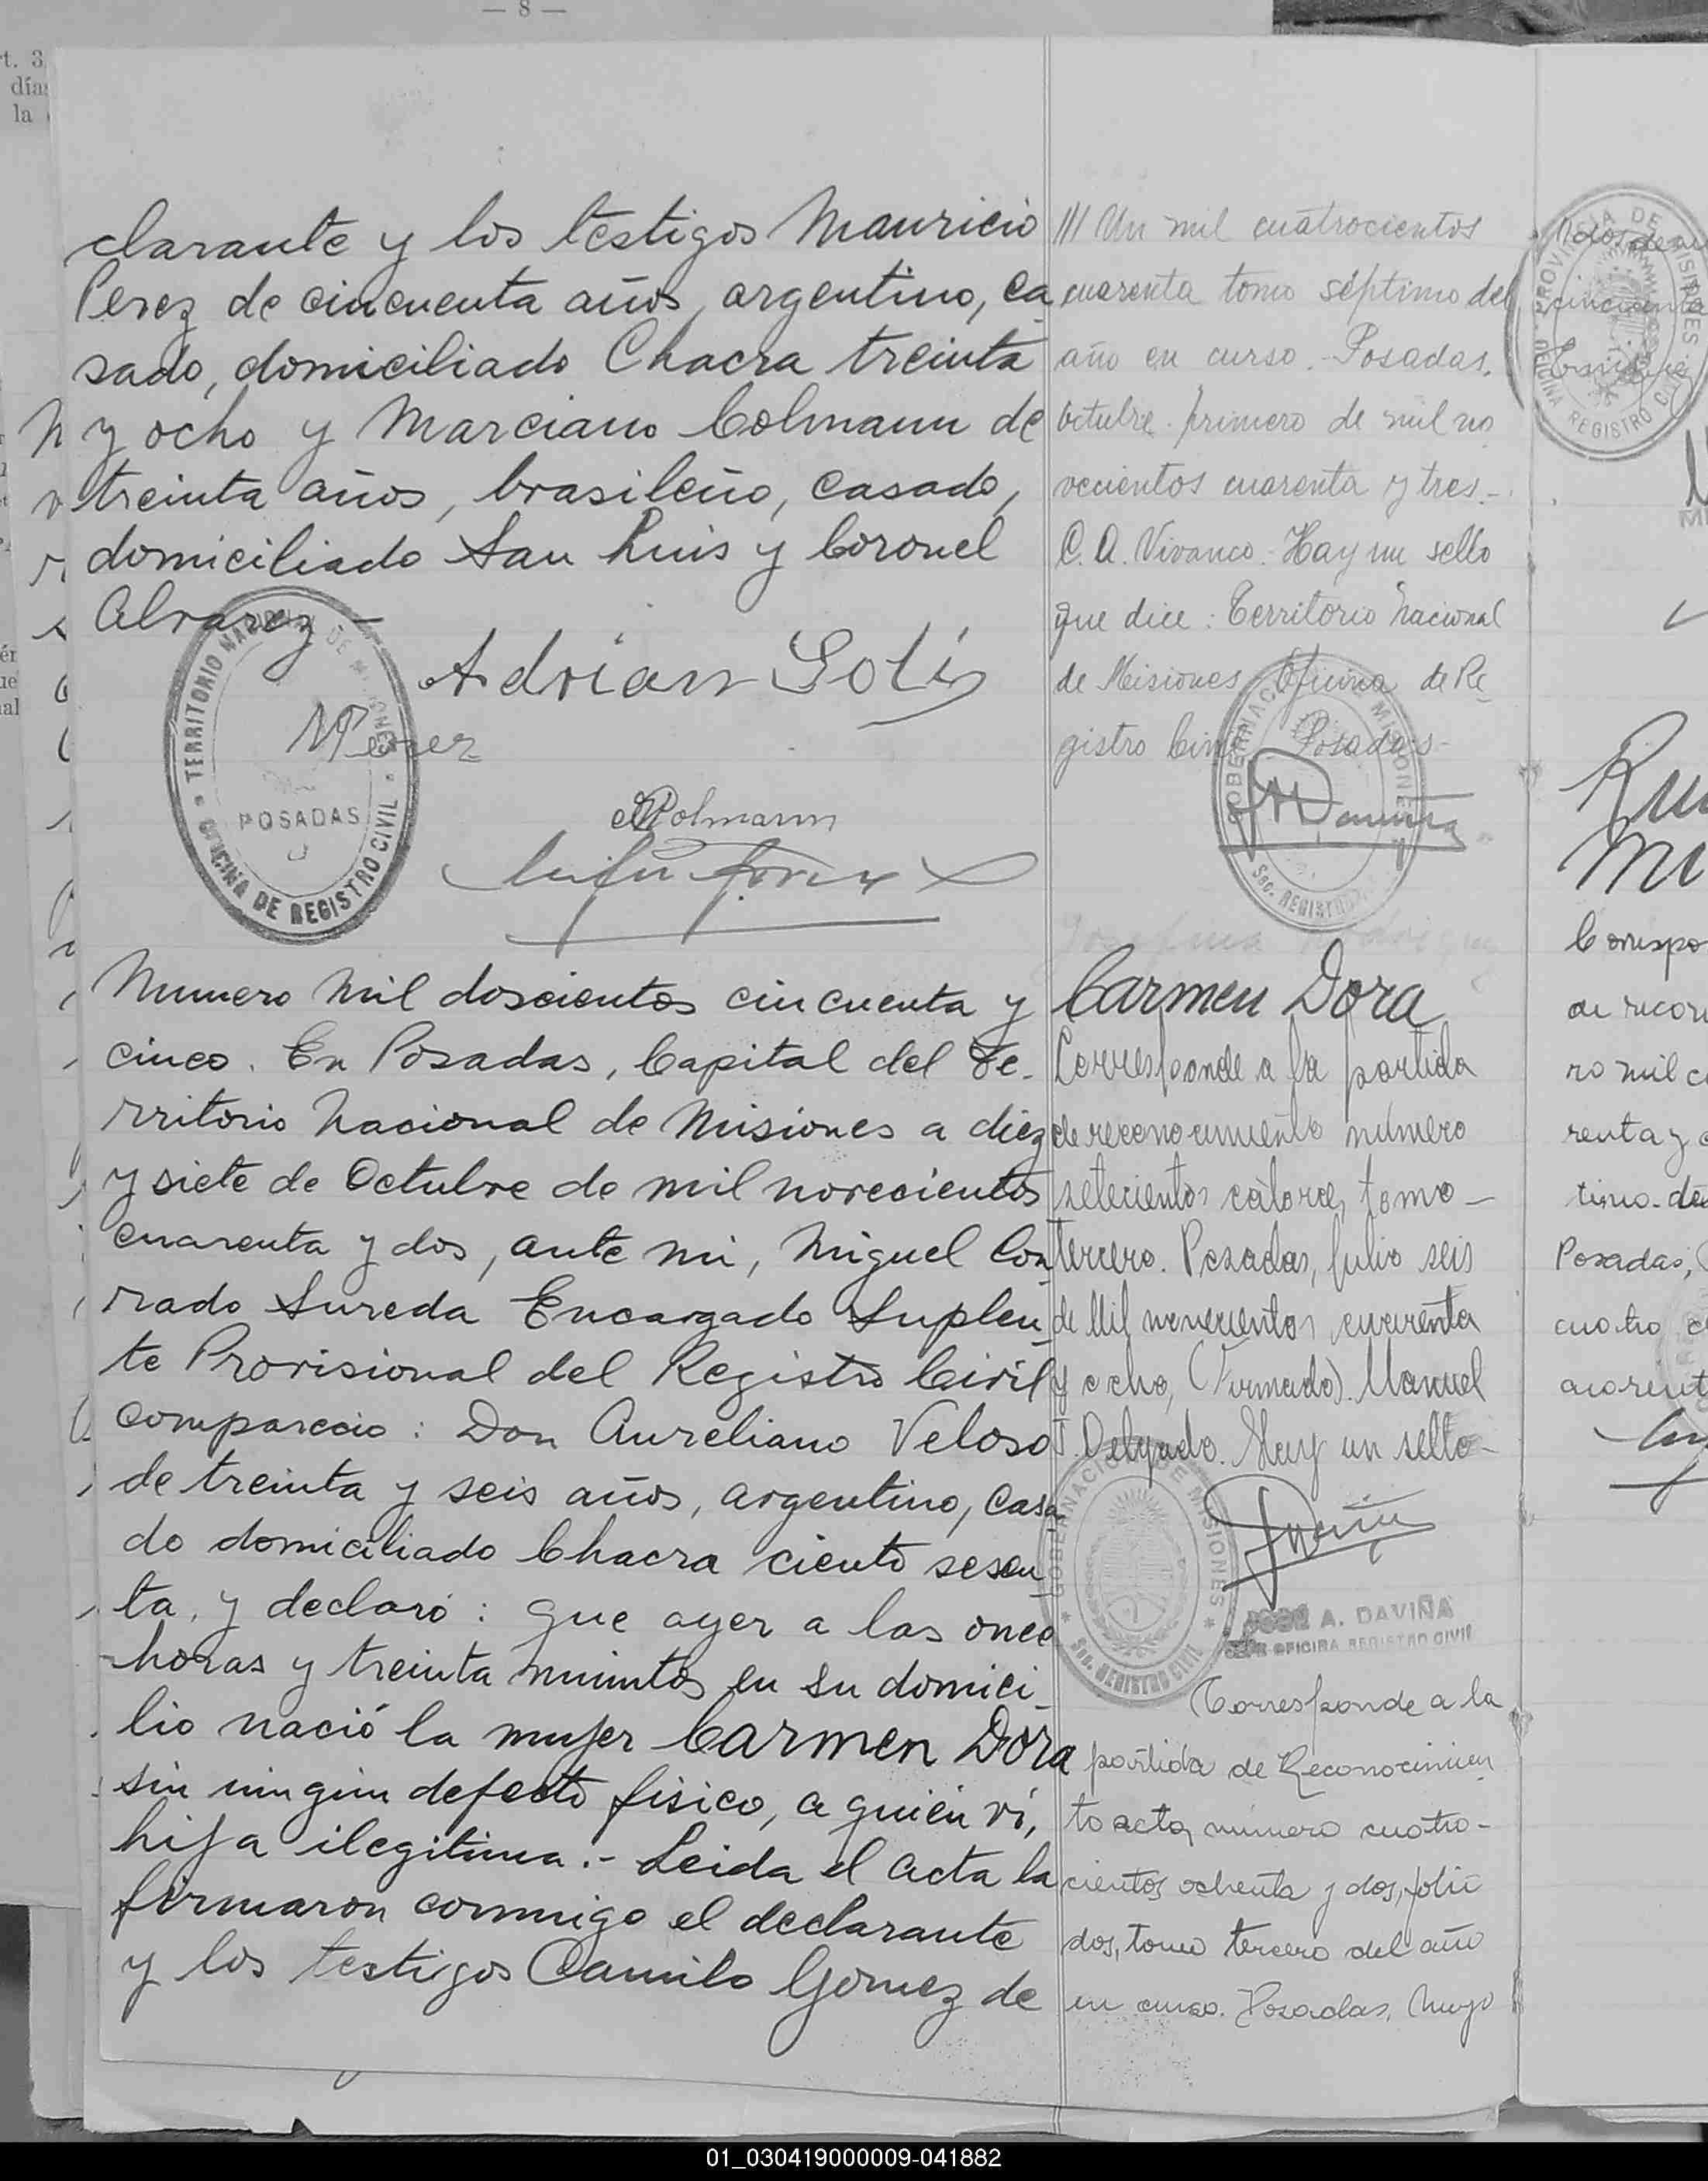 — 8 —
clarante y los testigos Mauricio
Perez de cincuenta años, argentino, ca
sado, domiciliado Chacra treinta
y ocho y Marciano Colmann de
treinta años, brasileño, casado,
domiciliado San Luis y Coronel
Alvarez –
Adrian Solis
MPerez
MColmann
TERRITORIO NACIONAL DE MISIONES
POSADAS
OFICINA DE REGISTRO CIVIL
Numero mil doscientos cincuenta y
cinco. En Posadas, Capital del Te-
rritorio Nacional de Misiones a diez
y siete de Octubre de mil novecientos
cuarenta y dos, ante mi, Miguel Con
rado Sureda Encargado Suplen
te Provisional del Registro Civil
comparecio: Don Aureliano Veloso
de treinta y seis años, argentino, casa
do domiciliado Chacra ciento sesen
ta, y declaró: que ayer a las once
horas y treinta minutos en su domici-
lio nació la mujer Carmen Dora
sin ningun defecto fisico, a quien vi,
hija ilegitima.- Leida el acta la
firmaron conmigo el declarante
y los testigos Camilo Gomez de
/// Un mil cuatrocientos
cuarenta tomo séptimo del
año en curso. - Posadas,
Octubre primero de mil no
vecientos cuarenta y tres.-
C. A. Vivanco.- Hay un sello
que dice: Territorio Nacional
de Misiones Oficina de Re
gistro Civil Posadas-
GOBERNACION DE MISIONES
Sec. REGISTRO CIVIL
Carmen Dora
Corresponde a la partida
de reconocimiento número
setecientos catorce, tomo –
tercero. Posadas, julio seis
de Mil novecientos cuarenta
y ocho, (Firmado). Manuel
J. Delgado. Hay un sello-
GOBERNACION DE MISIONES
Sec. REGISTRO CIVIL
JOSE A. DAVIÑA
JEFE OFICINA REGISTRO CIVIL
Corresponde a la
partida de Reconocimien
to acta, número cuatro-
cientos ochenta y dos, folio
dos, tomo tercero del año
en curso. Posadas, Mayo
PROVINCIA DE MISIONES
OFICINA REGISTRO CIVIL
cincuenta
Corespo
de recon
ro mil c
renta y
timo. de
Posadas,
cuatro
cuarent
01_030419000009-041882